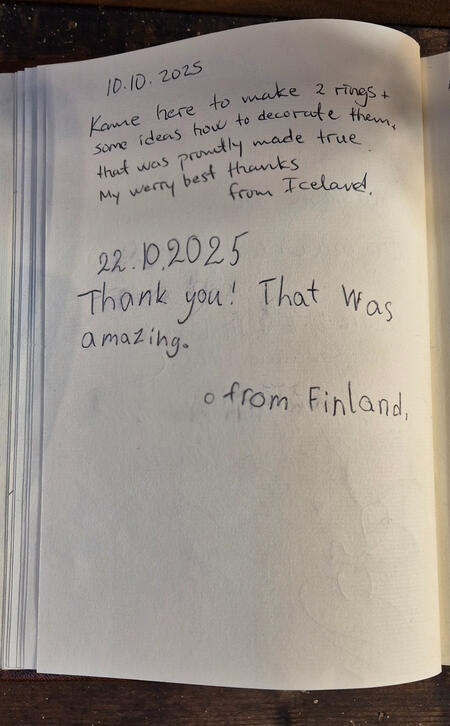 10.10.2025
Kame here to make 2 rings +
some ideas how to decorate them,
that was promtly made true.
My werry best thanks
from Iceland.
22.10.2025
Thank you! That was
amazing.
from Finland.